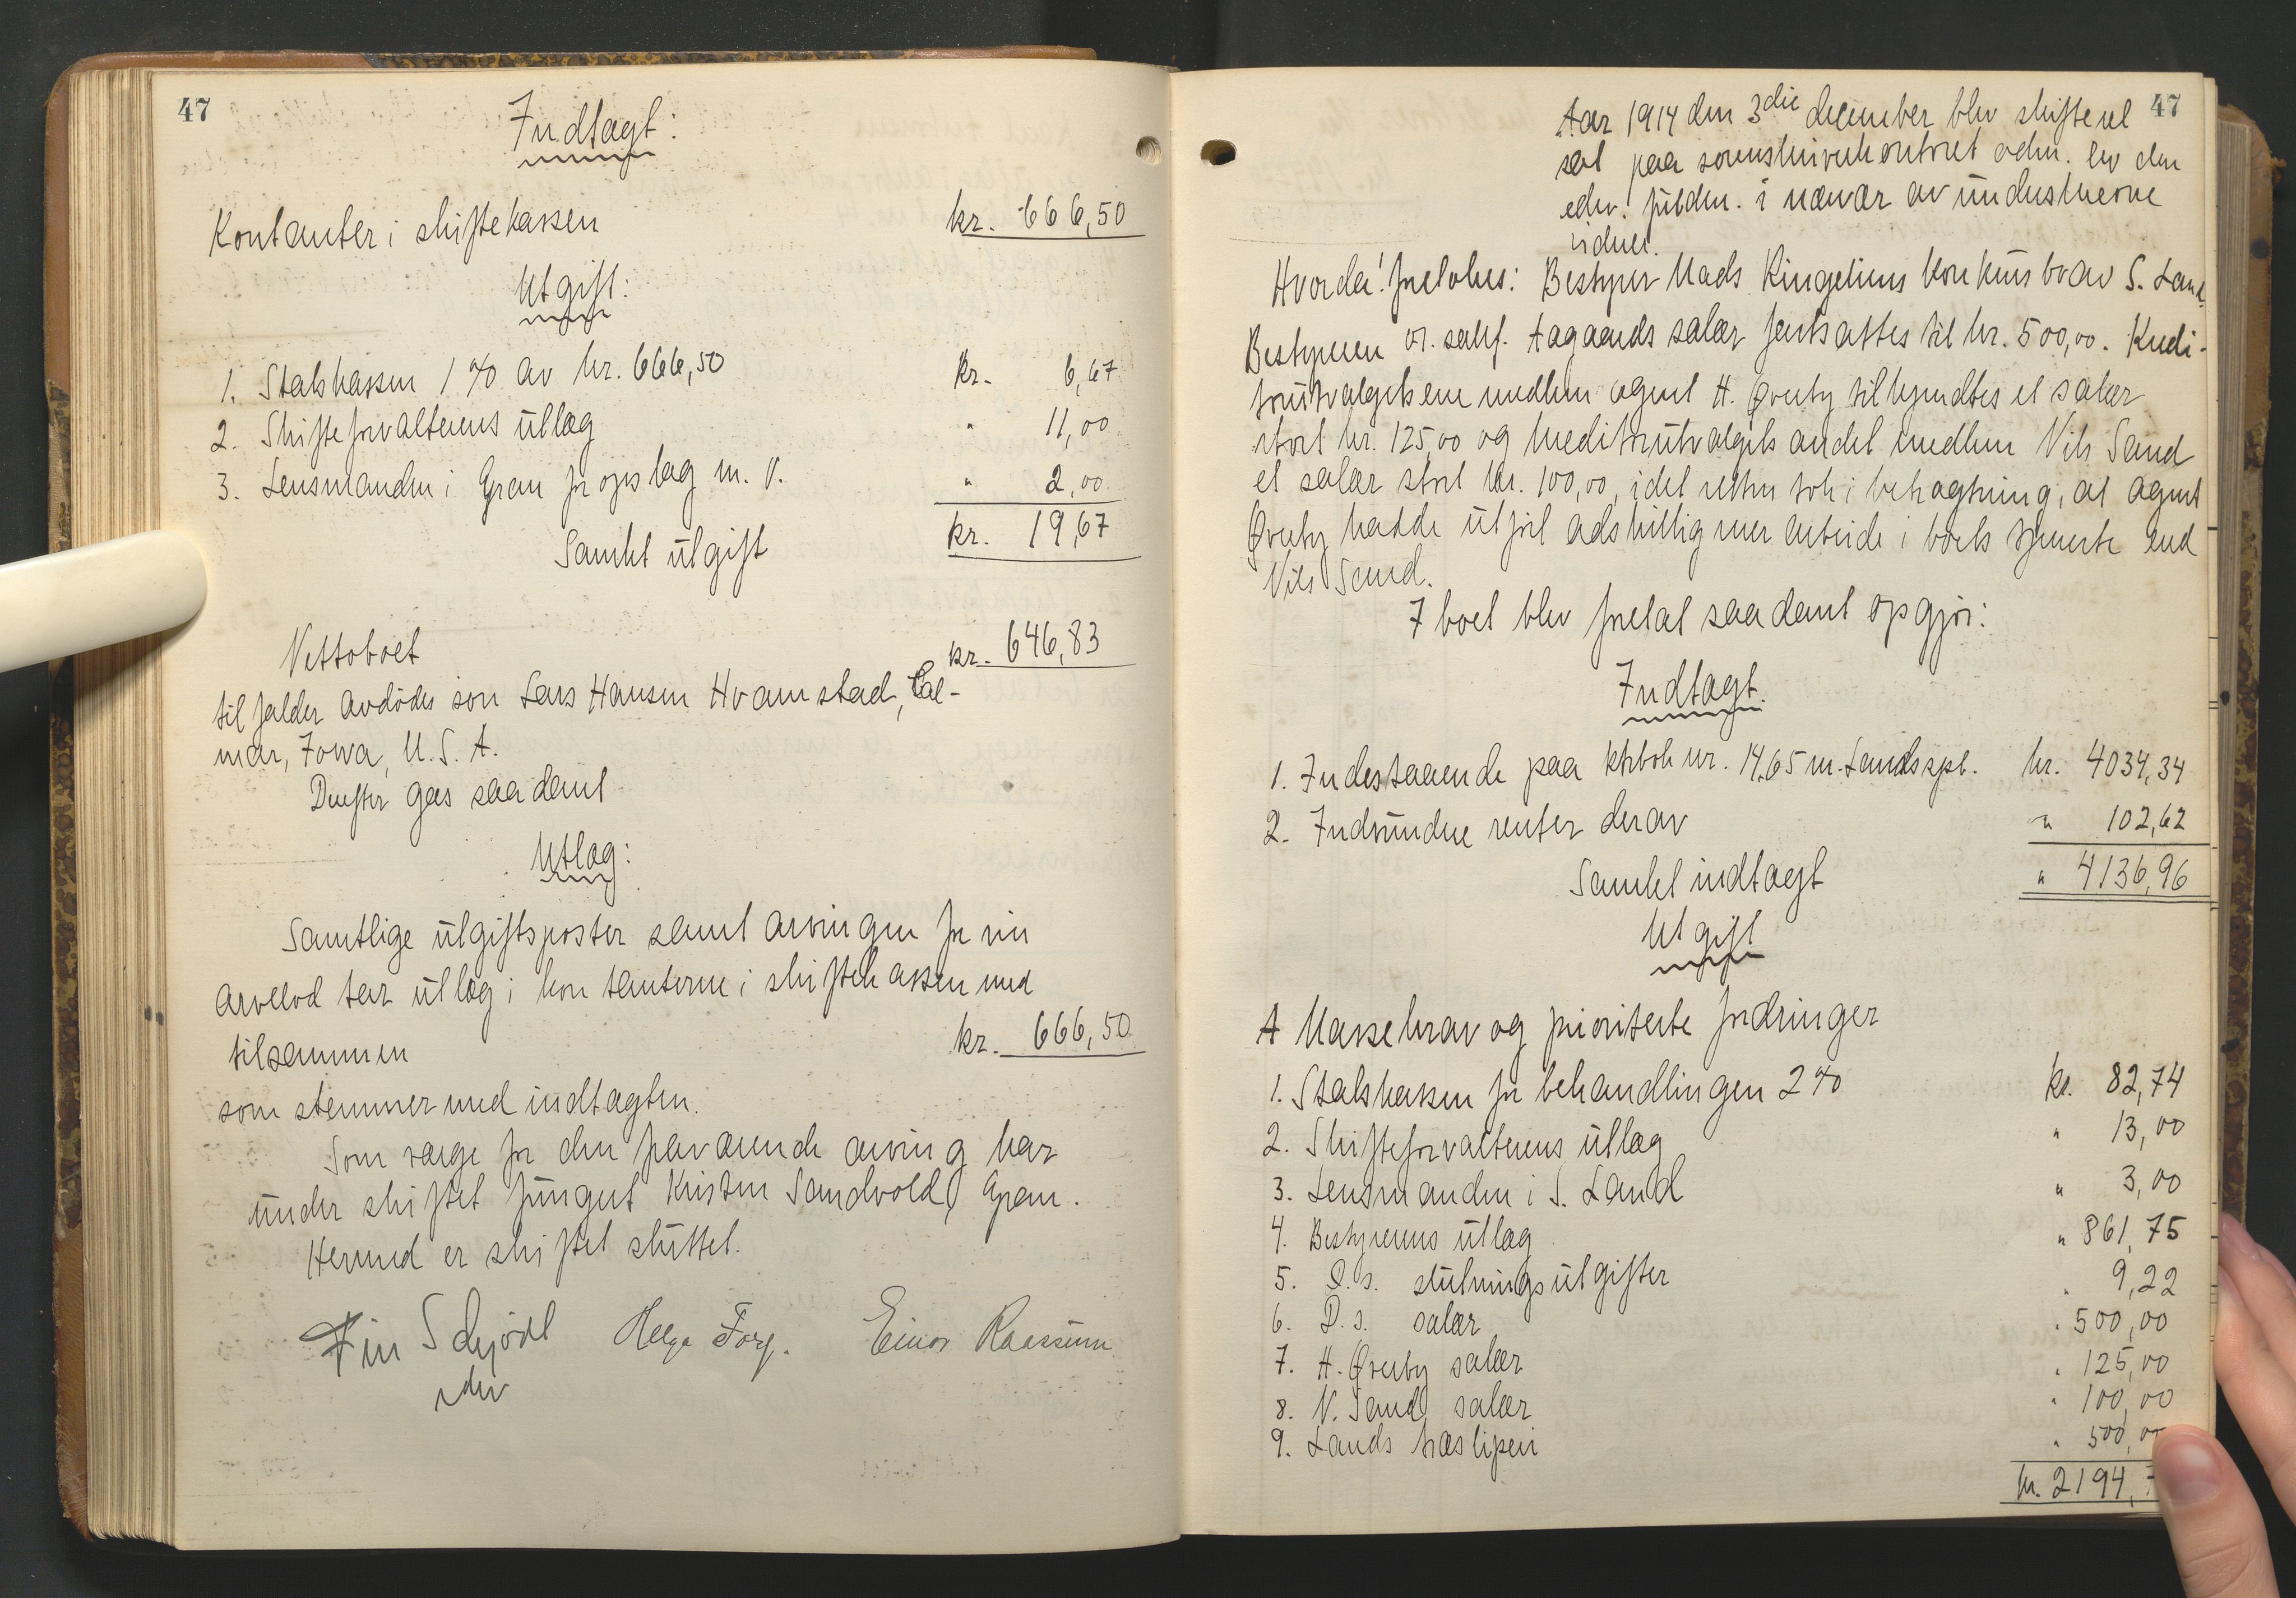 47
Indtægt:
Kontanter i skiftekassen kr. 666,50
Utgift:
1. Statskassen 1 % av kr. 666,50 kr. 6,67
2. Skifteforvalterens utlæg " 11,00
3. Lensmanden i Gran for opslag m. v. " 2,00
Samlet utgift kr. 19,67
Nettoboet kr. 646,83
tilfalder avdødes søn Lars Hansen Hvamstad, Cal-
mar, Iowa, U.S.A.
Derefter gaes saadant
Utlæg:
Samtlige utgiftsposter samt arvingen for sin
arvelod tar utlæg i kontanterne i skiftekassen med
tilsammen kr. 666,50
som stemmer med indtægten.
Som værge for den fraværende arving har
under skiftet fungert Kristen Sandvold, Gran.
Hermed er skiftet sluttet.
Finn Schjödt Helga Einar Raassum
47
Aar 1914 den 3die december blev skifteret
sat paa sorenskriverkontoret adm. ev den
edsv. fuldm. i nærvær av undeskrevne
vidner.
Hvorda! foretokes: Bestyrer Mads Ringeliens konkursbo av S. Land.
Bestyreren or. sakf. Aagaards salær fastsattes til kr. 500,00. Kredi-
torutvalgets ene medlem agent H. Øverby tilkjendtes et salær
stort kr. 125,00 og kreditorutvalgets andet medlem Nils Sand
et salær stort kr. 100,00, idet retten tok i betragtning, at agent
Øverby hadde utført adskillig mer arbeide i boets tjeneste end
Nils Sand.
I boet blev foretat saadant opgjør:
Indtægt.
1. Indestaaende paa ktrbok nr. 1465 m. Lands spb. kr. 4034,34
2. Indvundne renter derav " 102,62
Samlet indtægt " 4136,96
Utgift
A Massekrav og prioriterte fordringer
1. Statskassen for behandlingen 2 % kr. 82,74
2. Skifteforvalterens utlæg " 13,00
3. Lensmanden i S. Land " 3,00
4. Bestyrerens utlæg " 861,75
5. D.s. slutningsutgifter " 9,22
6. D.s. salær " 500,00
7. H. Øverby salær " 125,00
8. N. Sand salær " 100,00
9. Lands træsliperi " 500,0
kr. 2194,7